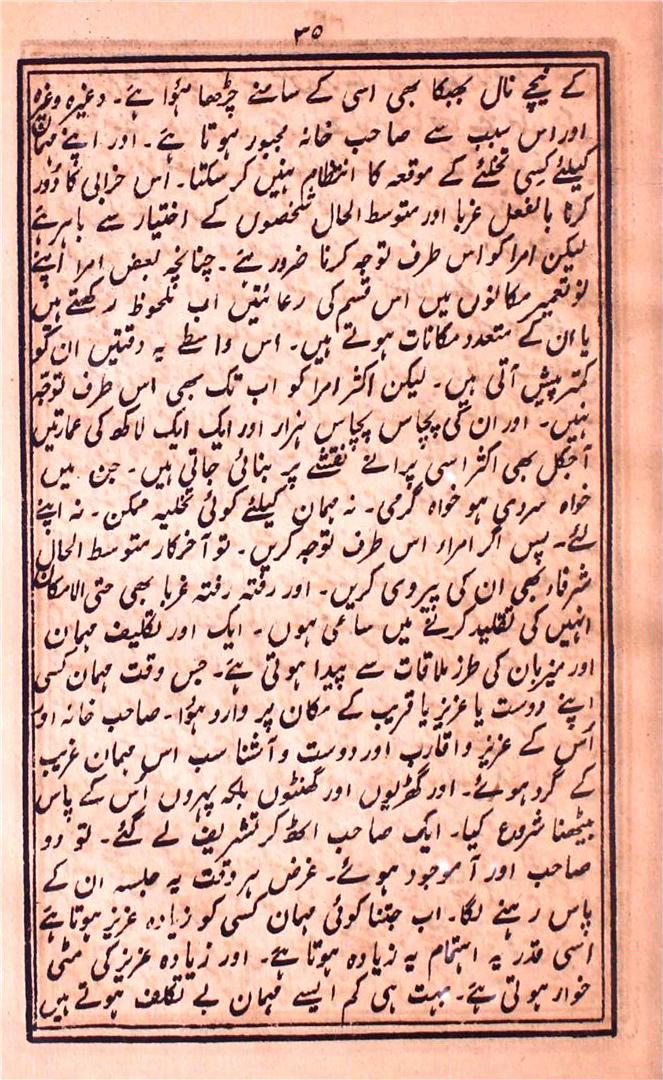 ۳۵
کے نیچے نال بھبکا بھی اسی کے سامنے چڑھا ہؤا ہے۔ وغیرہ وغیرہ
اور اس سبب سے صاحب خانہ مجبور ہوتا ہے۔ اور اپنے مہمان
کیلئے کسی تخلئے کے موقعہ کا انتظام نہیں کر سکتا۔ اس خرابی کا دُور
کرنا بالفعل غربا اور متوسط الحال شخصوں کے اختیار سے باہر ہے
لیکن امرا کو اس طرف توجہ کرنا ضرور ہے۔ چنانچہ بعض امرا اپنے
نوتعمیر مکانوں میں اس قسم کی رعائتیں اب ملحوظ رکھتے ہیں
یا ان کے متعدد مکانات ہوتے ہیں۔ اس واسطے یہ دقتیں ان کو
کمتر پیش آتی ہیں۔ لیکن اکثر امرا کو اب تک بھی اس طرف توجہ
نہیں۔ اور ان کی پچاس پچاس ہزار اور ایک ایک لاکھ کی عمارتیں
آجکل بھی اکثر اسی پرانے نقشے پر بنائی جاتی ہیں۔ جن میں
خواہ سردی ہو خواہ گرمی۔ نہ مہمان کیلئے کوئی تخلیہ ممکن۔ نہ اپنے
لئے۔ پس اگر امراء اس طرف توجہ کریں۔ تو آخرکار متوسط الحال
شرفاء بھی ان کی پیروی کریں۔ اور رفتہ رفتہ غربا بھی حتی الامکان
انہیں کی تقلید کرنے میں ساعی ہوں۔ ایک اور تکلیف مہمان
اور میزبان کی طرز ملاقات سے پیدا ہوتی ہے۔ جس وقت مہمان کسی
اپنے دوست یا عزیز یا قریب کے مکان پر وارد ہؤا۔ صاحب خانہ اور
اُس کے عزیز و اقارب اور دوست و آشنا سب اس مہمان غریب
کے گرد ہوئے۔ اور گھڑیوں اور گھنٹوں بلکہ پہروں اُس کے پاس
بیٹھنا شروع کیا۔ ایک صاحب اٹھ کر تشریف لے گئے۔ تو دو
صاحب اور آ موجود ہوئے۔ غرض ہر وقت یہ جلسہ ان کے
پاس رہنے لگا۔ اب جتنا کوئی مہمان کسی کو زیادہ عزیز ہوتا ہے
اسی قدر یہ اہتمام یہ زیادہ ہوتا ہے۔ اور زیادہ عزیز کی مٹی
خوار ہوتی ہے۔ بہت ہی کم ایسے مہمان بے تکلف ہوتے ہیں